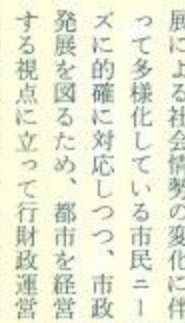 展による社会情勢の変化に伴
って多様化している市民ニー
ズに的確に対応しつつ、市政
発展を図るため、都市を経営
する視点に立って行財政運営